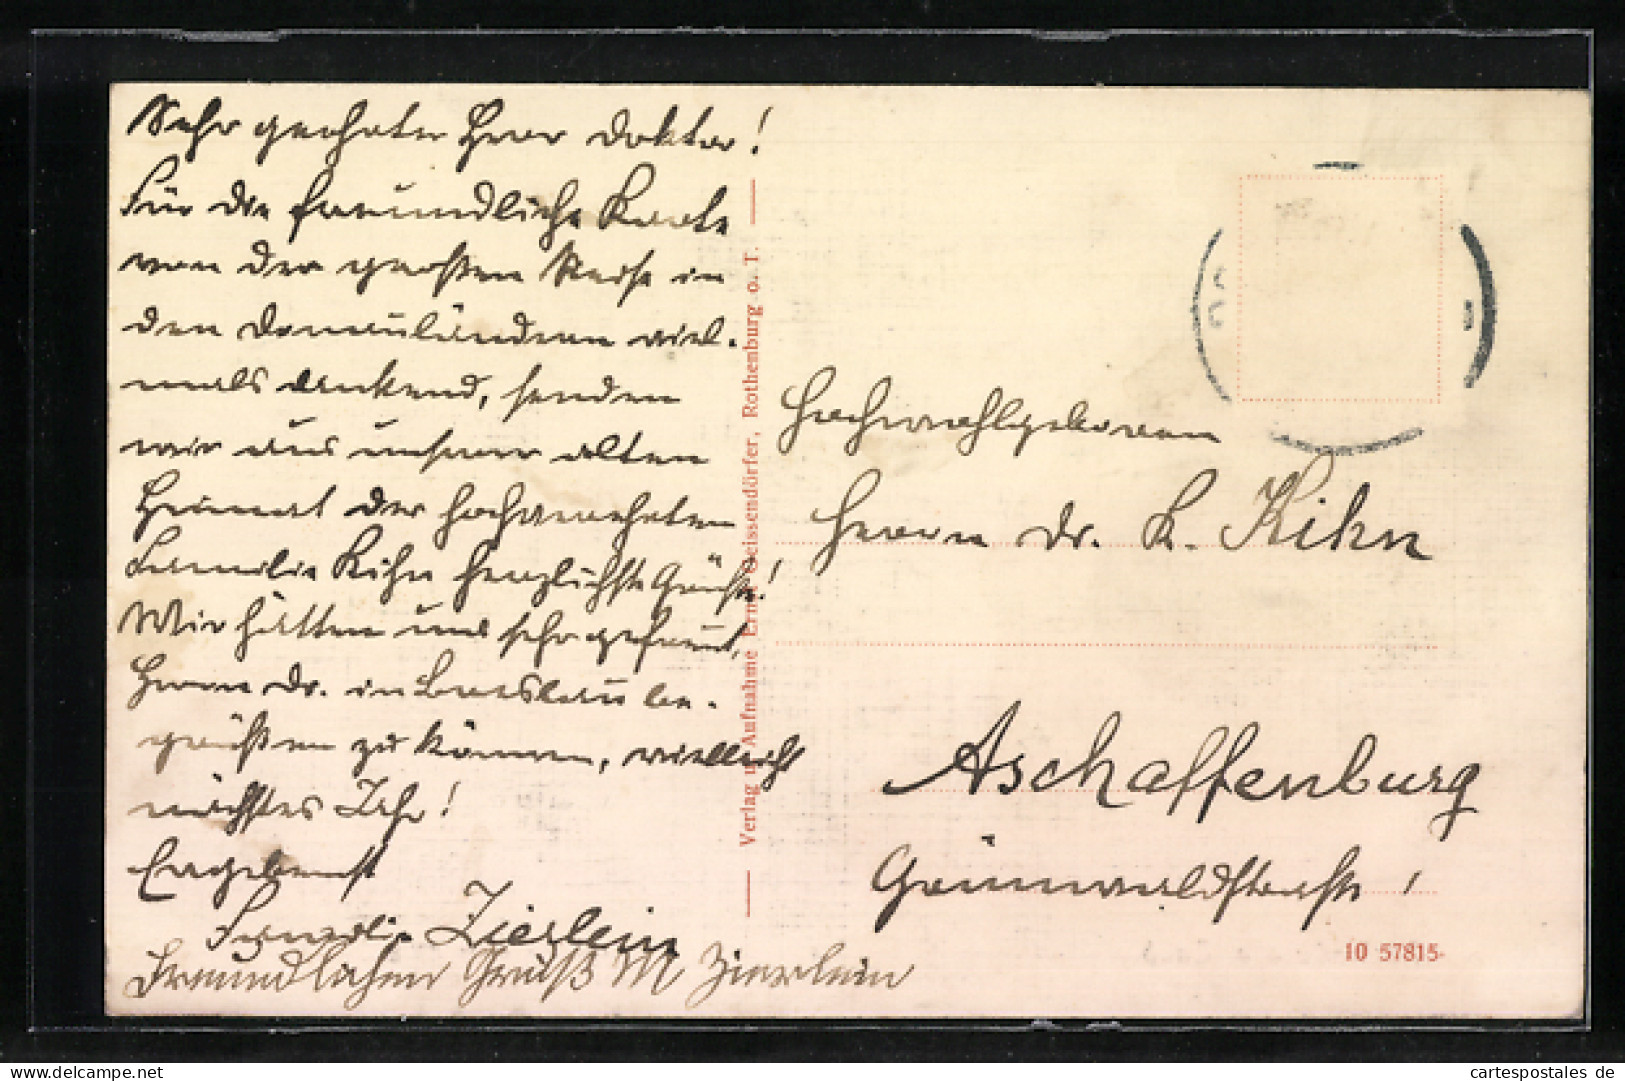 Sehr geehrter Herr Doktor!
Für die freundliche Karte
von der großen Reise in
den Donauländern viel-
mals dankend, senden
wir aus unserer alten
Heimat der hochverehrten
Familie Kihn herzlichste Grüße!
Wir hätten uns sehr gefreut,
Herrn Dr. in Breslau be-
grüßen zu können, vielleicht
nächstes Jahr!
Ergebenst
Familie Zierlein
Freundlichen Gruß M Zierlein
Verlag u. Aufnahme Ernst Geissendörfer, Rothenburg o. T.
Hochwohlgeboren
Herrn Dr. K. Kihn
Aschaffenburg
Grünewaldstraße 1
10 57815
cartespostales de